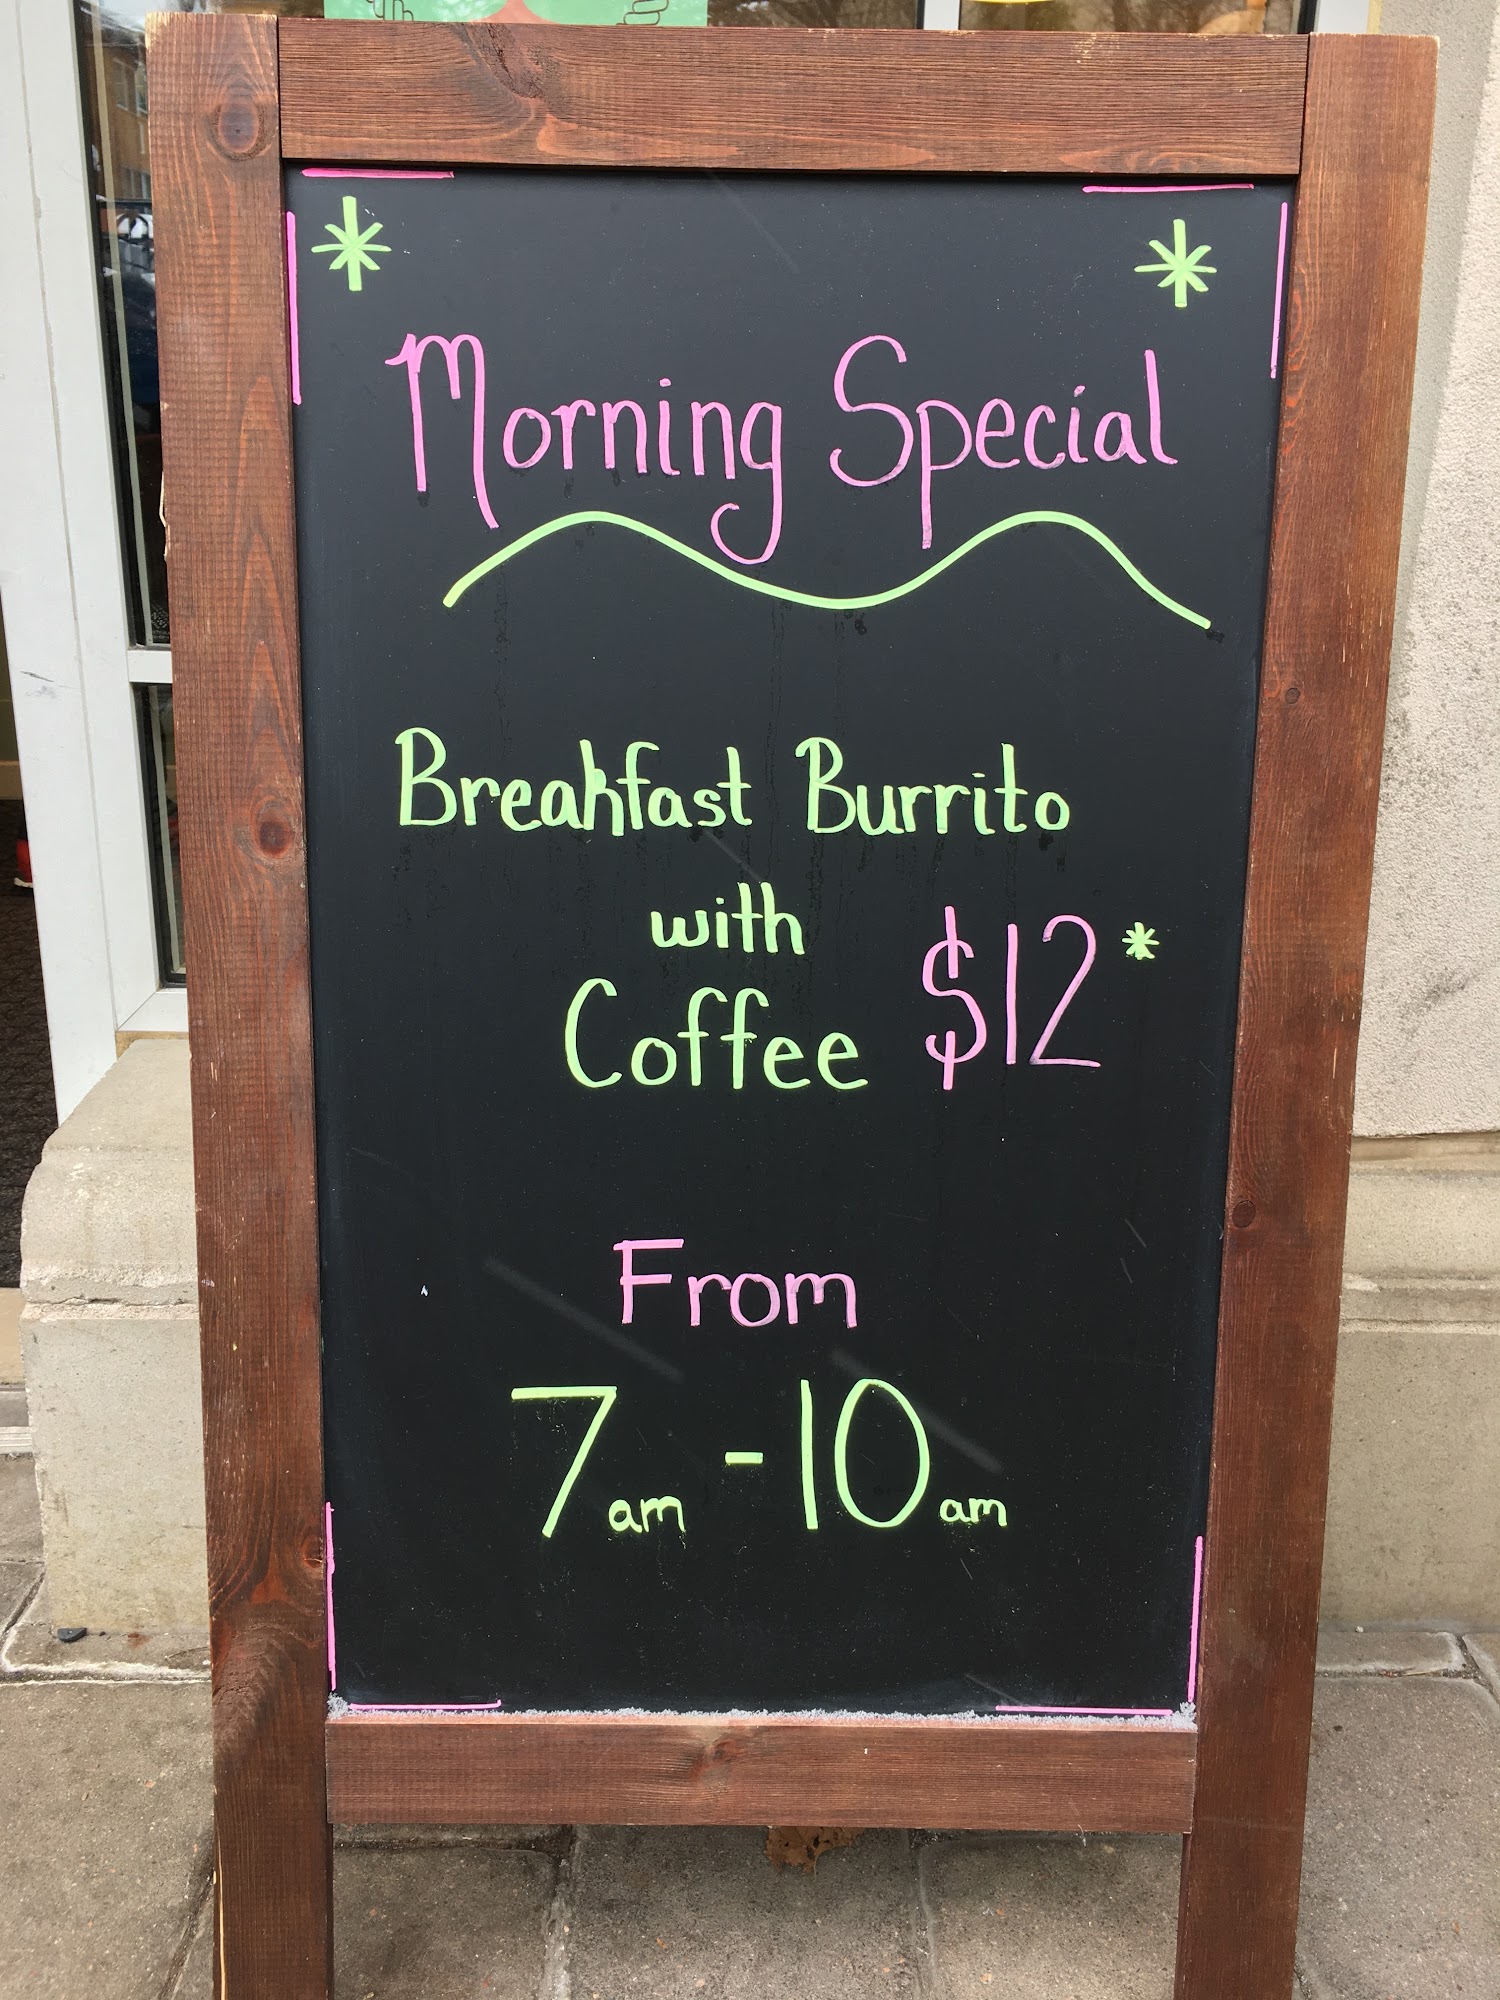 * *
Morning Special
Breakfast Burrito
with
Coffee $12*
From
7am - 10am